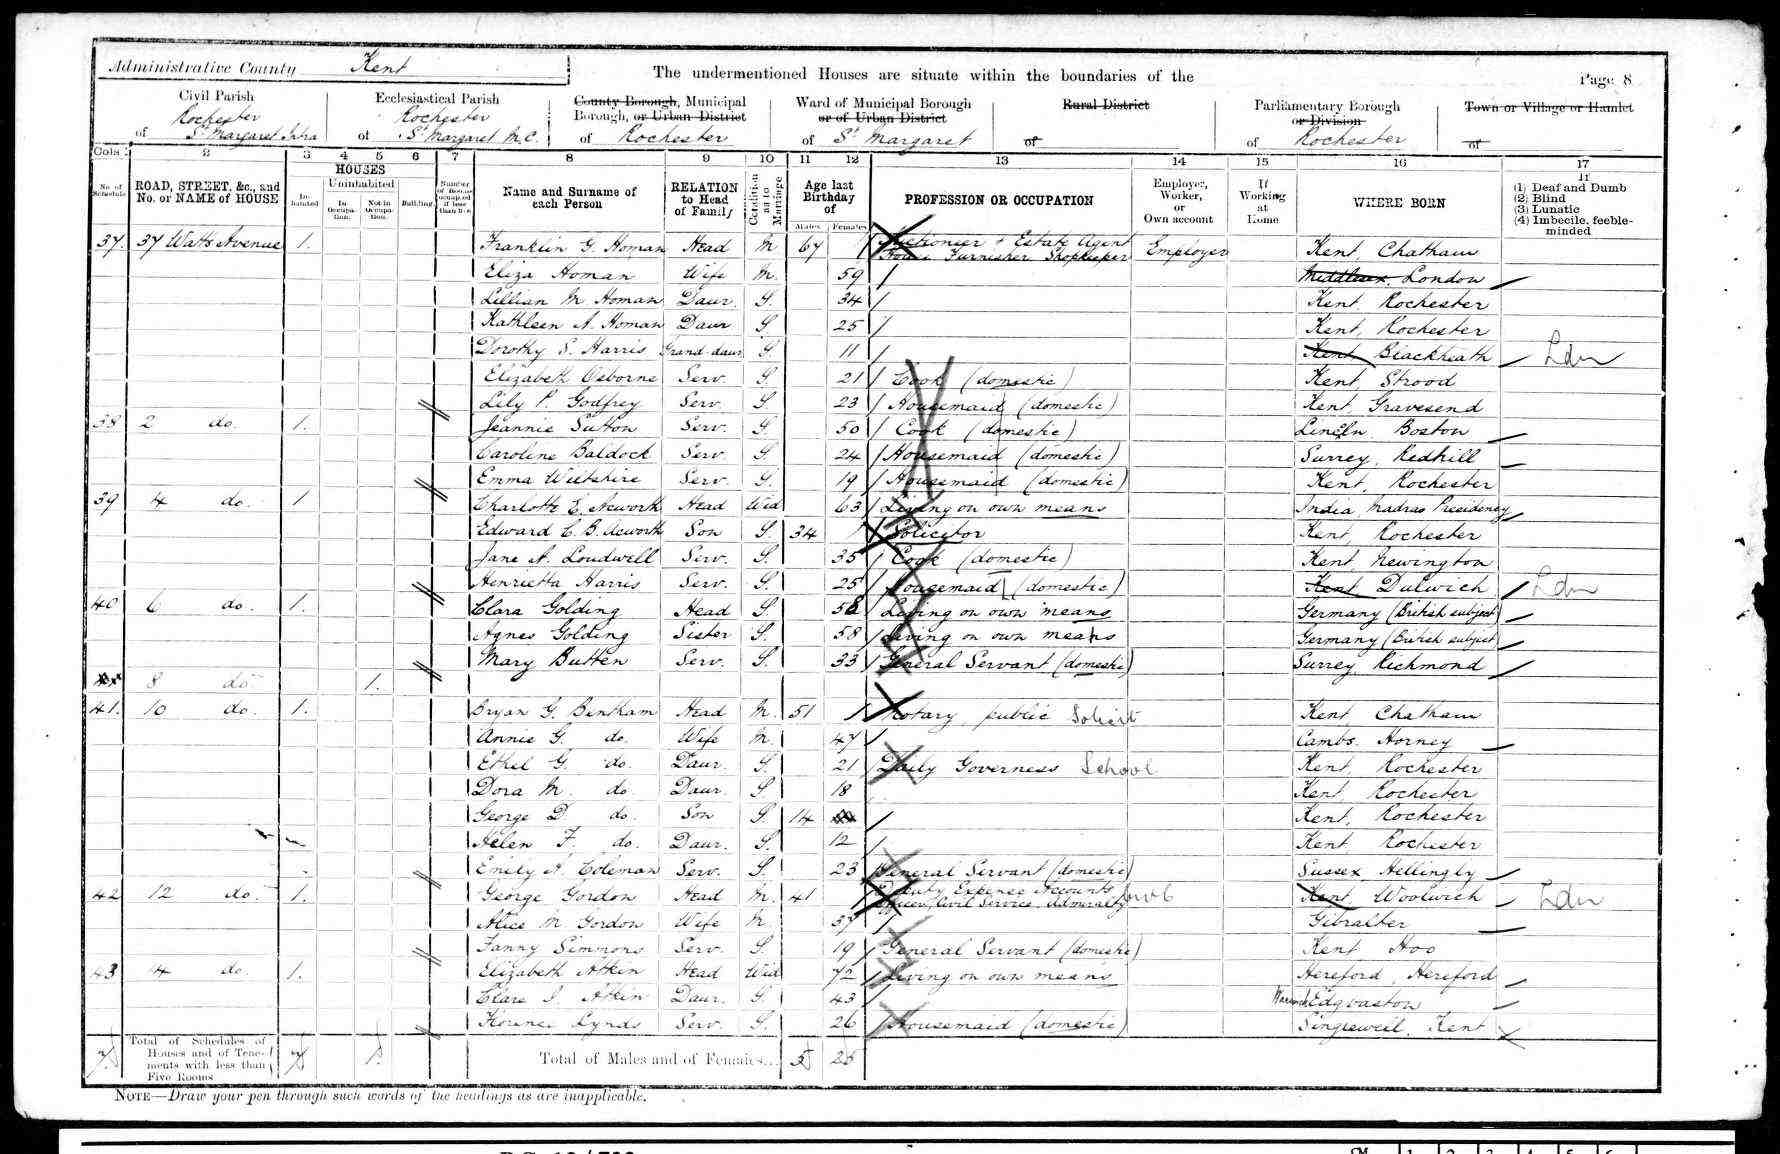 Administrative County Kent
The undermentioned Houses are situate within the boundaries of the
Page 8
Civil Parish of Rochester St Margaret Intra
Ecclesiastical Parish of Rochester St Margaret M.C.
County Borough, Municipal Borough, or Urban District of Rochester
Ward of Municipal Borough or of Urban District of St Margaret
Rural District of
Parliamentary Borough or Division of Rochester
Town or Village or Hamlet of
Cols. 2 3 4 5 6 7 8 9 10 11 12 13 14 15 16 17
No. of Schedule
ROAD, STREET, &c., and No. or NAME of HOUSE
HOUSES
Inhabited
Uninhabited
In Occupation.
Not in Occupation.
Building.
Number of Rooms occupied if less than five
Name and Surname of each Person
RELATION to Head of Family
Condition as to Marriage
Age last Birthday of
Males Females
PROFESSION OR OCCUPATION
Employer, Worker, or Own account
If Working at Home
WHERE BORN
If (1) Deaf and Dumb (2) Blind (3) Lunatic (4) Imbecile, feeble-minded
37. 37 Watts Avenue 1. Franklin G. Homan Head M 67 Auctioneer & Estate Agent House Furnisher Shopkeeper Employer Kent, Chatham
Eliza Homan Wife M. 59 Middlesex, London
Lillian M Homan Daur. S. 34 Kent, Rochester
Kathleen A. Homan Daur S 25 Kent, Rochester
Dorothy S. Harris Grand-daur S. 11 Kent, Blackheath Ldn
Elizabeth Osborne Serv. S. 21 Cook (domestic) Kent, Strood
Lily P. Godfrey Serv. S. 23 Housemaid (domestic) Kent, Gravesend
38 2 do. 1. Jeannie Sutton Serv. S. 50 Cook (domestic) Lincoln. Boston
Caroline Baldock Serv. S. 24 Housemaid (domestic) Surrey, Redhill
Emma Wiltshire Serv. S. 19 Housemaid (domestic) Kent, Rochester
39 4 do. 1 Charlotte E. Acworth Head Wid 63 Living on own means India, Madras Presidency
Edward C. B. Acworth Son S. 34 Solicitor Kent, Rochester
Jane A. Loudwell Serv. S. 35 Cook (domestic) Kent Newington
Henrietta Harris Serv. S. 25 Housemaid (domestic) Kent Dulwich Ldn
40 6 do. 1. Clara Golding Head S. Living on own means Germany (British subject)
Agnes Golding Sister S. 58 Living on own means Germany (British subject)
Mary Butten Serv. S. 33 General Servant (domestic) Surrey Richmond
8 do 1.
41. 10 do. 1. Bryan G. Bentham Head M. 51 Notary public Solicit Kent Chatham
Annie G. do. Wife M. 47 Cambs. Horney
Ethel G. do. Daur. S. 21 Daily Governess School Kent, Rochester
Dora M. do. Daur. S 18 Kent, Rochester
George D. do. Son S. 14 Kent, Rochester
Helen F. do. Daur. S. 12 Kent Rochester
Emily A. Coleman Serv. S. 23 General Servant (domestic) Sussex Hellingly
42 12 do. 1. George Gordon Head M. 41 Deputy Expense Accounts Officer, Civil Service, Admiralty Kent Woolwich Ldn
Alice M Gordon Wife M 37 Gibralter
Fanny Simmons Serv. S. 19 General Servant (domestic) Kent Hoo
43 14 do. 1. Elizabeth Atkin Head Wid 72 Living on own means Hereford, Hereford
Clara J. Atkin Daur. S. 43 Warwick Edgvaston
Lynds Serv. S. 26 Housemaid (domestic) Singlewell, Kent
Total of Schedules of Houses and of Tenements with less than Five Rooms
Total of Males and of Females...
5 25
NOTE—Draw your pen through such words of the headings as are inapplicable.